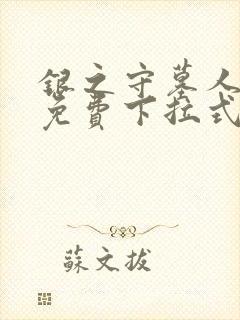 银之守墓人
免費下拉式
蘇文拔